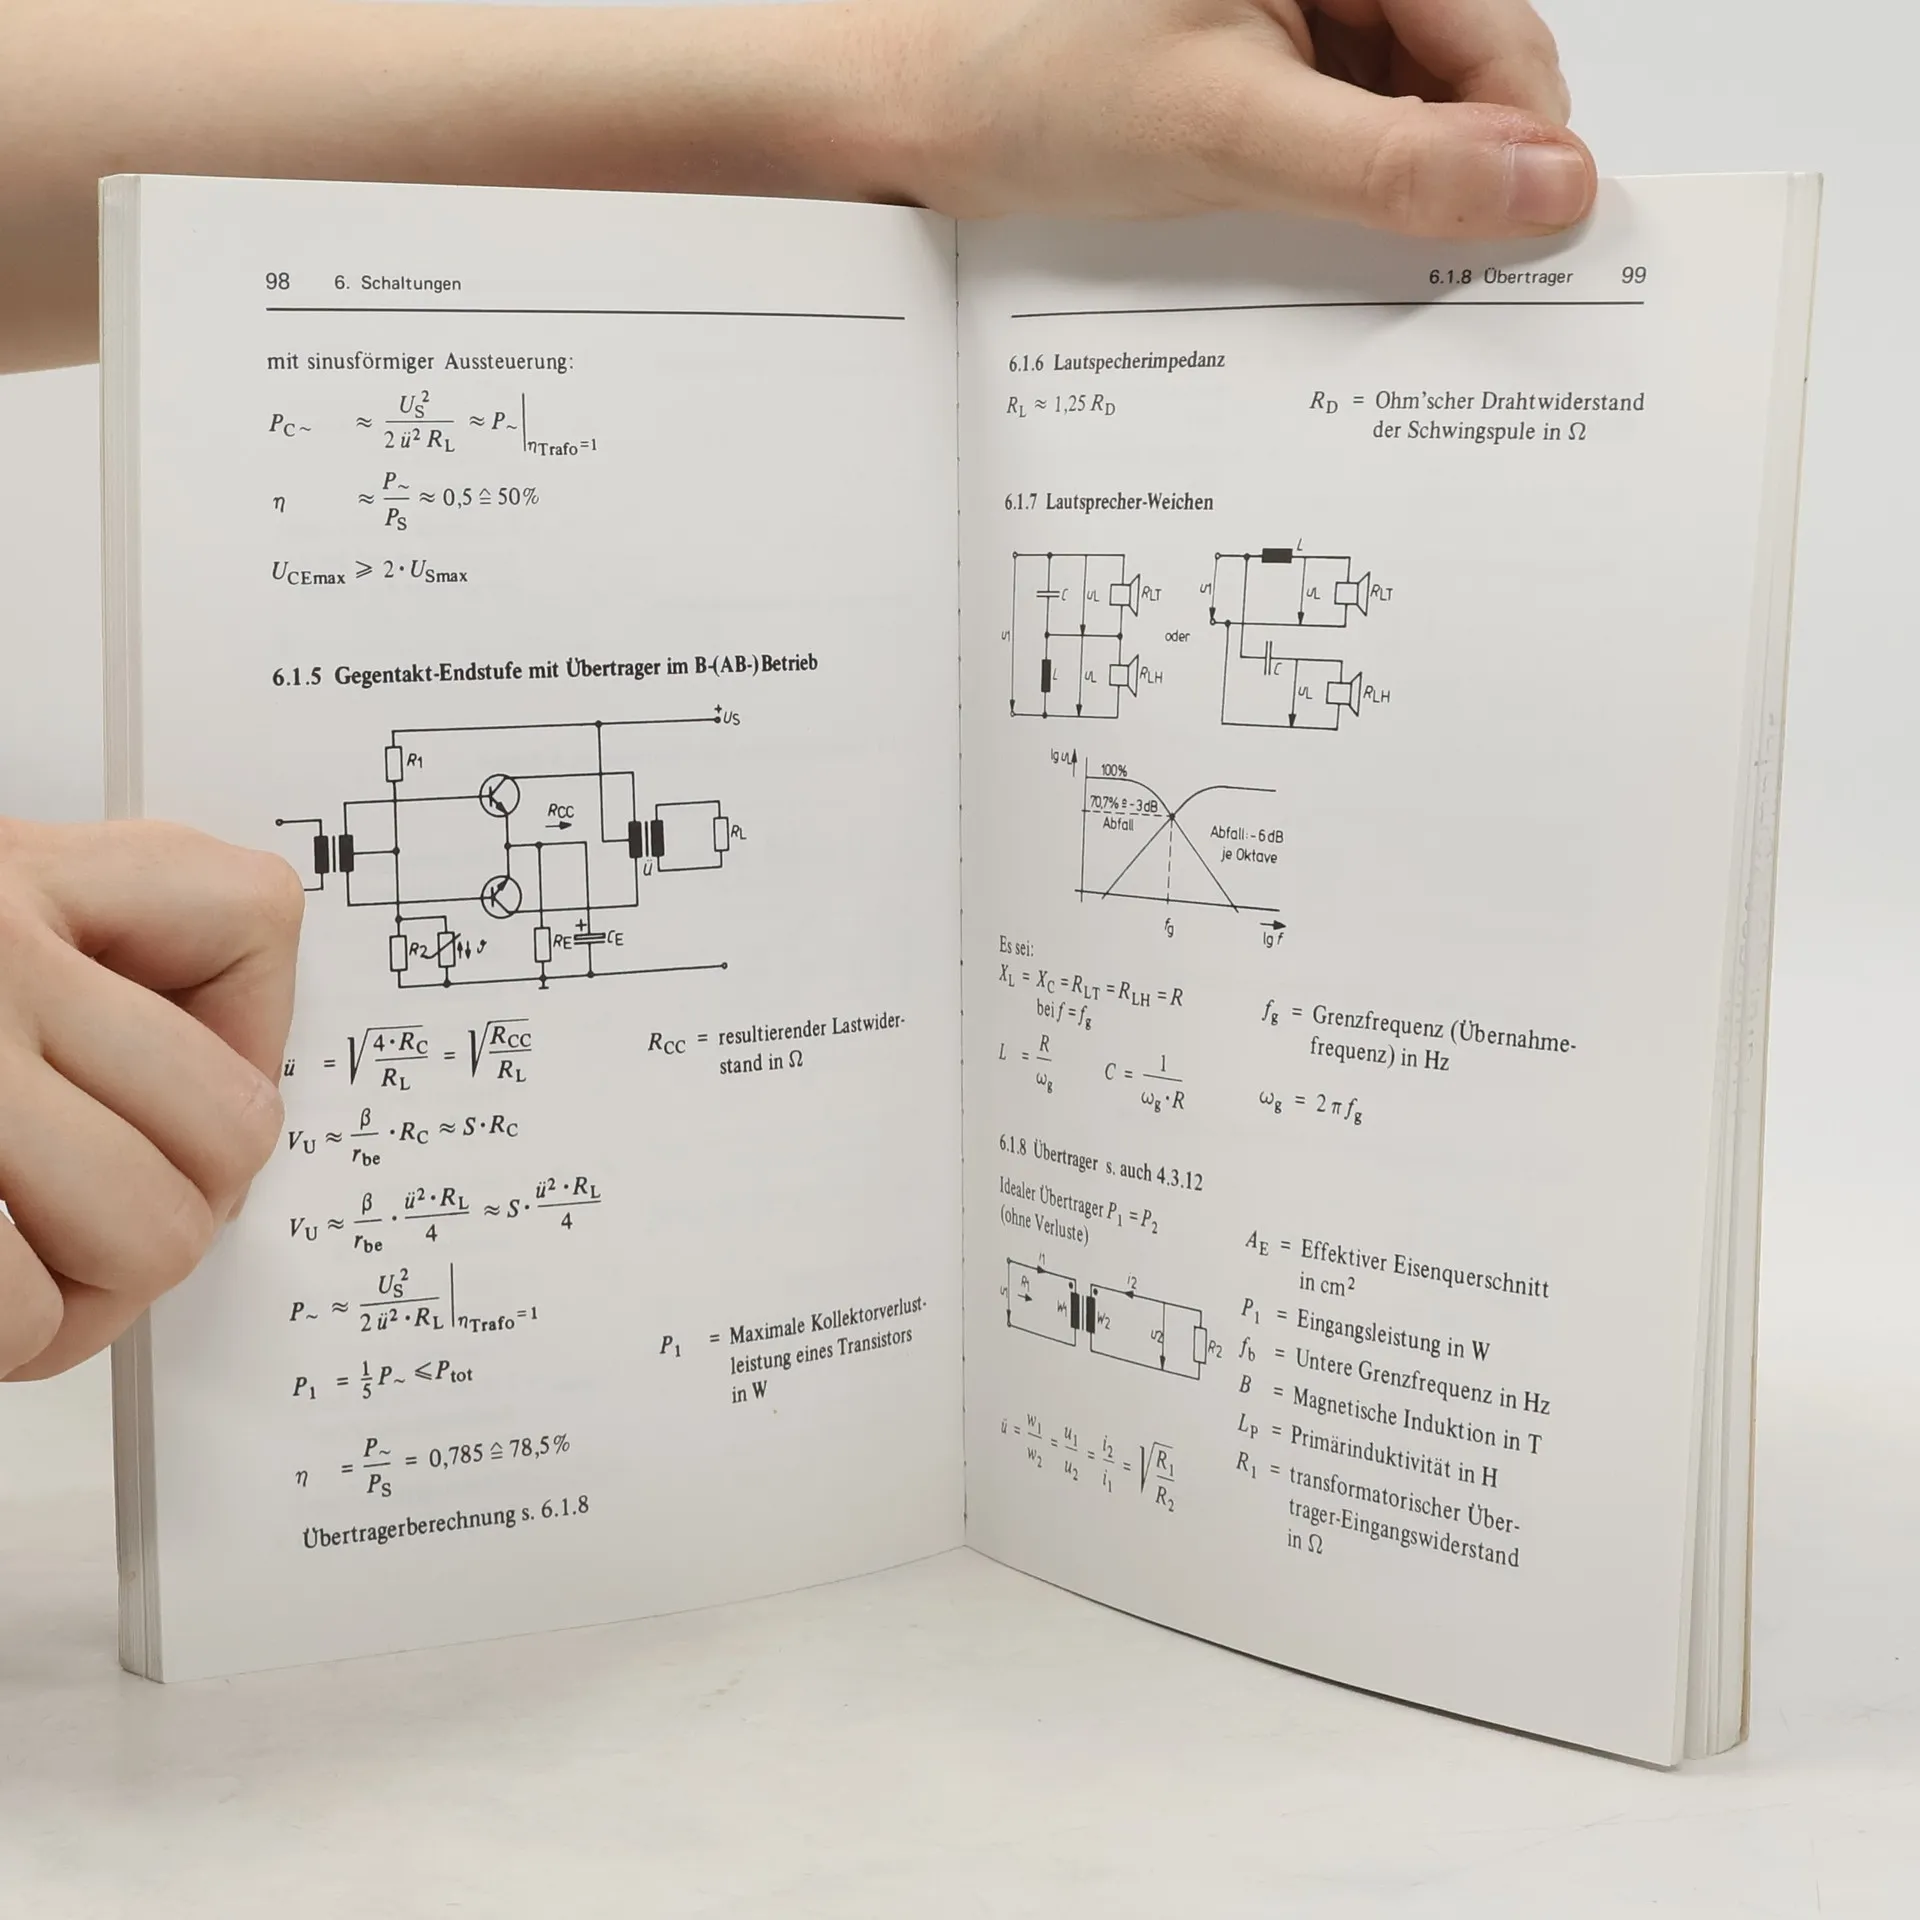 98 6. Schaltungen
mit sinusförmiger Aussteuerung:
P_C~ ≈ U_S² / (2 ü² R_L) ≈ P~ |η_Trafo=1
η ≈ P~ / P_S ≈ 0,5 ≙ 50%
U_CEmax ⩾ 2 · U_Smax
6.1.5 Gegentakt-Endstufe mit Übertrager im B-(AB-)Betrieb
+US
R1
RCC
RL
ü
R2
ϑ
RE
+
CE
ü = √(4·R_C / R_L) = √(R_CC / R_L)
R_CC = resultierender Lastwider-
stand in Ω
V_U ≈ β / r_be · R_C ≈ S·R_C
V_U ≈ β / r_be · ü²·R_L / 4 ≈ S · ü²·R_L / 4
P~ ≈ U_S² / (2 ü²·R_L) |η_Trafo=1
P_1 = 1/5 P~ ⩽ P_tot
P_1 = Maximale Kollektorverlust-
leistung eines Transistors
in W
η = P~ / P_S = 0,785 ≙ 78,5%
Übertragerberechnung s. 6.1.8
6.1.8 Übertrager 99
6.1.6 Lautspecherimpedanz
R_L ≈ 1,25 R_D
R_D = Ohm'scher Drahtwiderstand
der Schwingspule in Ω
6.1.7 Lautsprecher-Weichen
u1
C
uL
RLT
L
uL
RLH
oder
u1
L
uL
RLT
C
uL
RLH
lg uL
100%
70,7% ≙ -3dB
Abfall
Abfall:-6dB
je Oktave
fg
lg f
Es sei:
X_L = X_C = R_LT = R_LH = R
bei f = f_g
f_g = Grenzfrequenz (Übernahme-
frequenz) in Hz
L = R / ω_g
C = 1 / (ω_g · R)
ω_g = 2 π f_g
6.1.8 Übertrager s. auch 4.3.12
Idealer Übertrager P_1 = P_2
(ohne Verluste)
u1
i1
R1
W1
W2
i2
u2
R2
ü = w_1 / w_2 = u_1 / u_2 = i_2 / i_1 = √(R_1 / R_2)
A_E = Effektiver Eisenquerschnitt
in cm²
P_1 = Eingangsleistung in W
f_b = Untere Grenzfrequenz in Hz
B = Magnetische Induktion in T
L_P = Primärinduktivität in H
R_1 = transformatorischer Über-
trager-Eingangswiderstand
in Ω